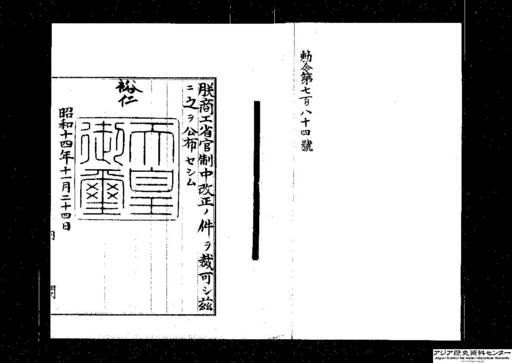 勅令第七百八十四號
朕商工省官制中改正ノ件ヲ裁可シ茲
ニ之ヲ公布セシム
裕仁
天皇御璽
昭和十四年十一月二十四日
内 閣
アジア歴史資料センター
Japan Center for Asian Historical Records